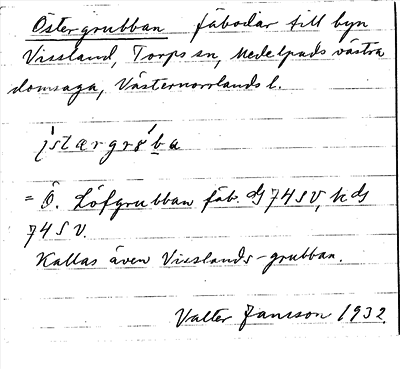 Östergrubban fäbodar till byn
Vissland, Torps sn, Medelpads västra
domsaga, Västernorrlands l.
= Ö. Löfgrubban fäb. dj 74 SV, k dj
74 S V.
Kallas även Visslands-grubban.
Valter Jansson 1932.